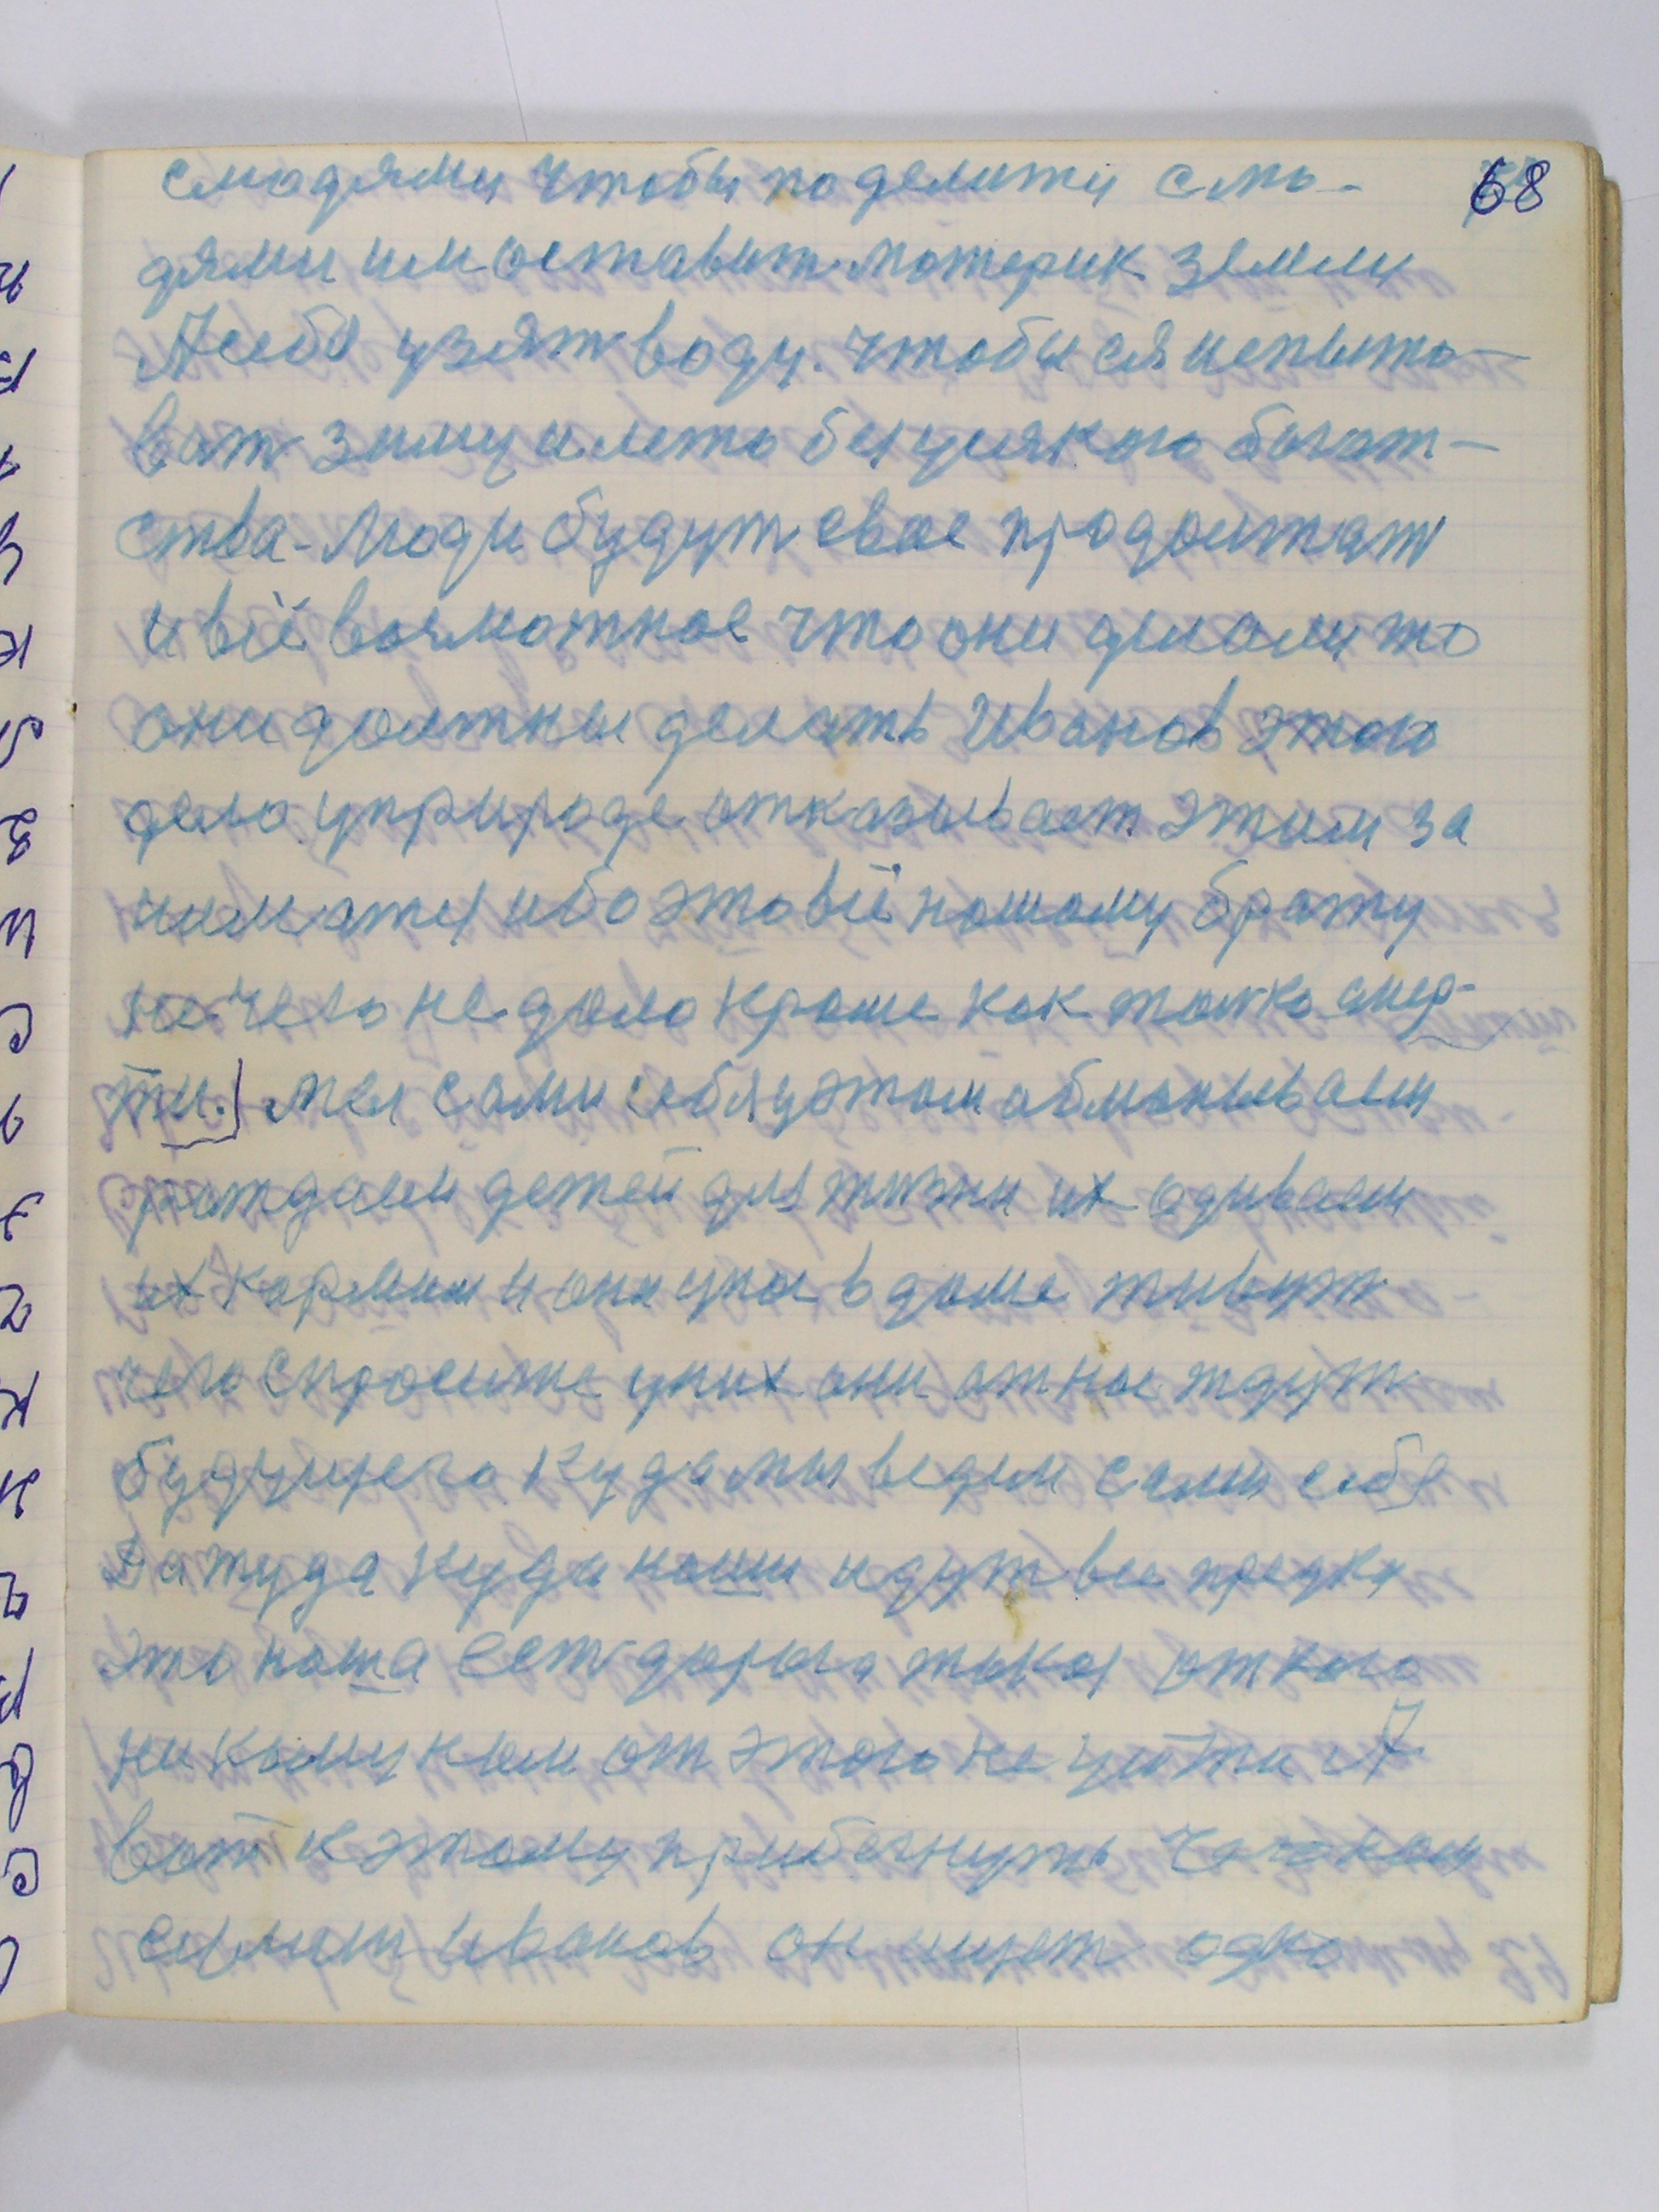 слюдями чтобы поделити слю- 68
дями им оставит материк земли
Асебе узят воду. чтобы ся испыто-
ват зиму и лето без усякого богат-
ства - Люди будут свое продолжат
и всё возможное что они делали то
они должны делать Иванов этого
дело уприроде отказывает этим за
ниматся ибо это всё нашому брату
нечего не дало кроме как толко смер-
ти.] мы сами себя уэтом абманываем
рождаем детей для жизни их одиваем
их кормим и они унас в доме живут
чего спросите уних они от нас ждут
будущего куда мы ведем сами себя
Да туда куда наши идут все предки
это наша ест дорога такая от кого
никому нам от этого не уйти А
вот к этому прибегнуть
Иванов он ищет одно